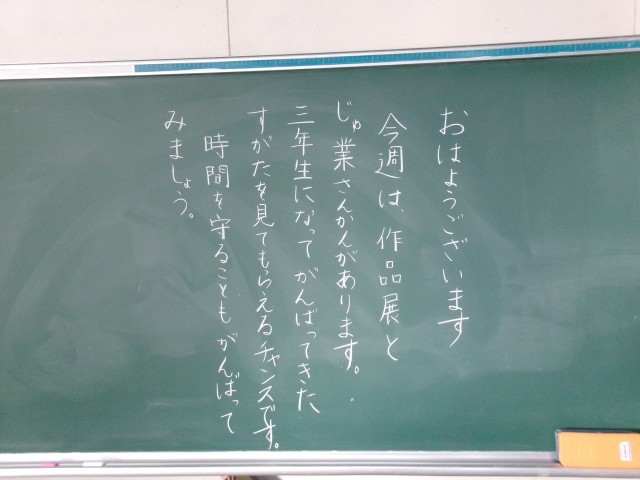 おはようございます
今週は、作品展と
じゅ業さんかんがあります。
三年生になってがんばってきた
すがたを見てもらえるチャンスです。
時間を守ることもがんばって
みましょう。